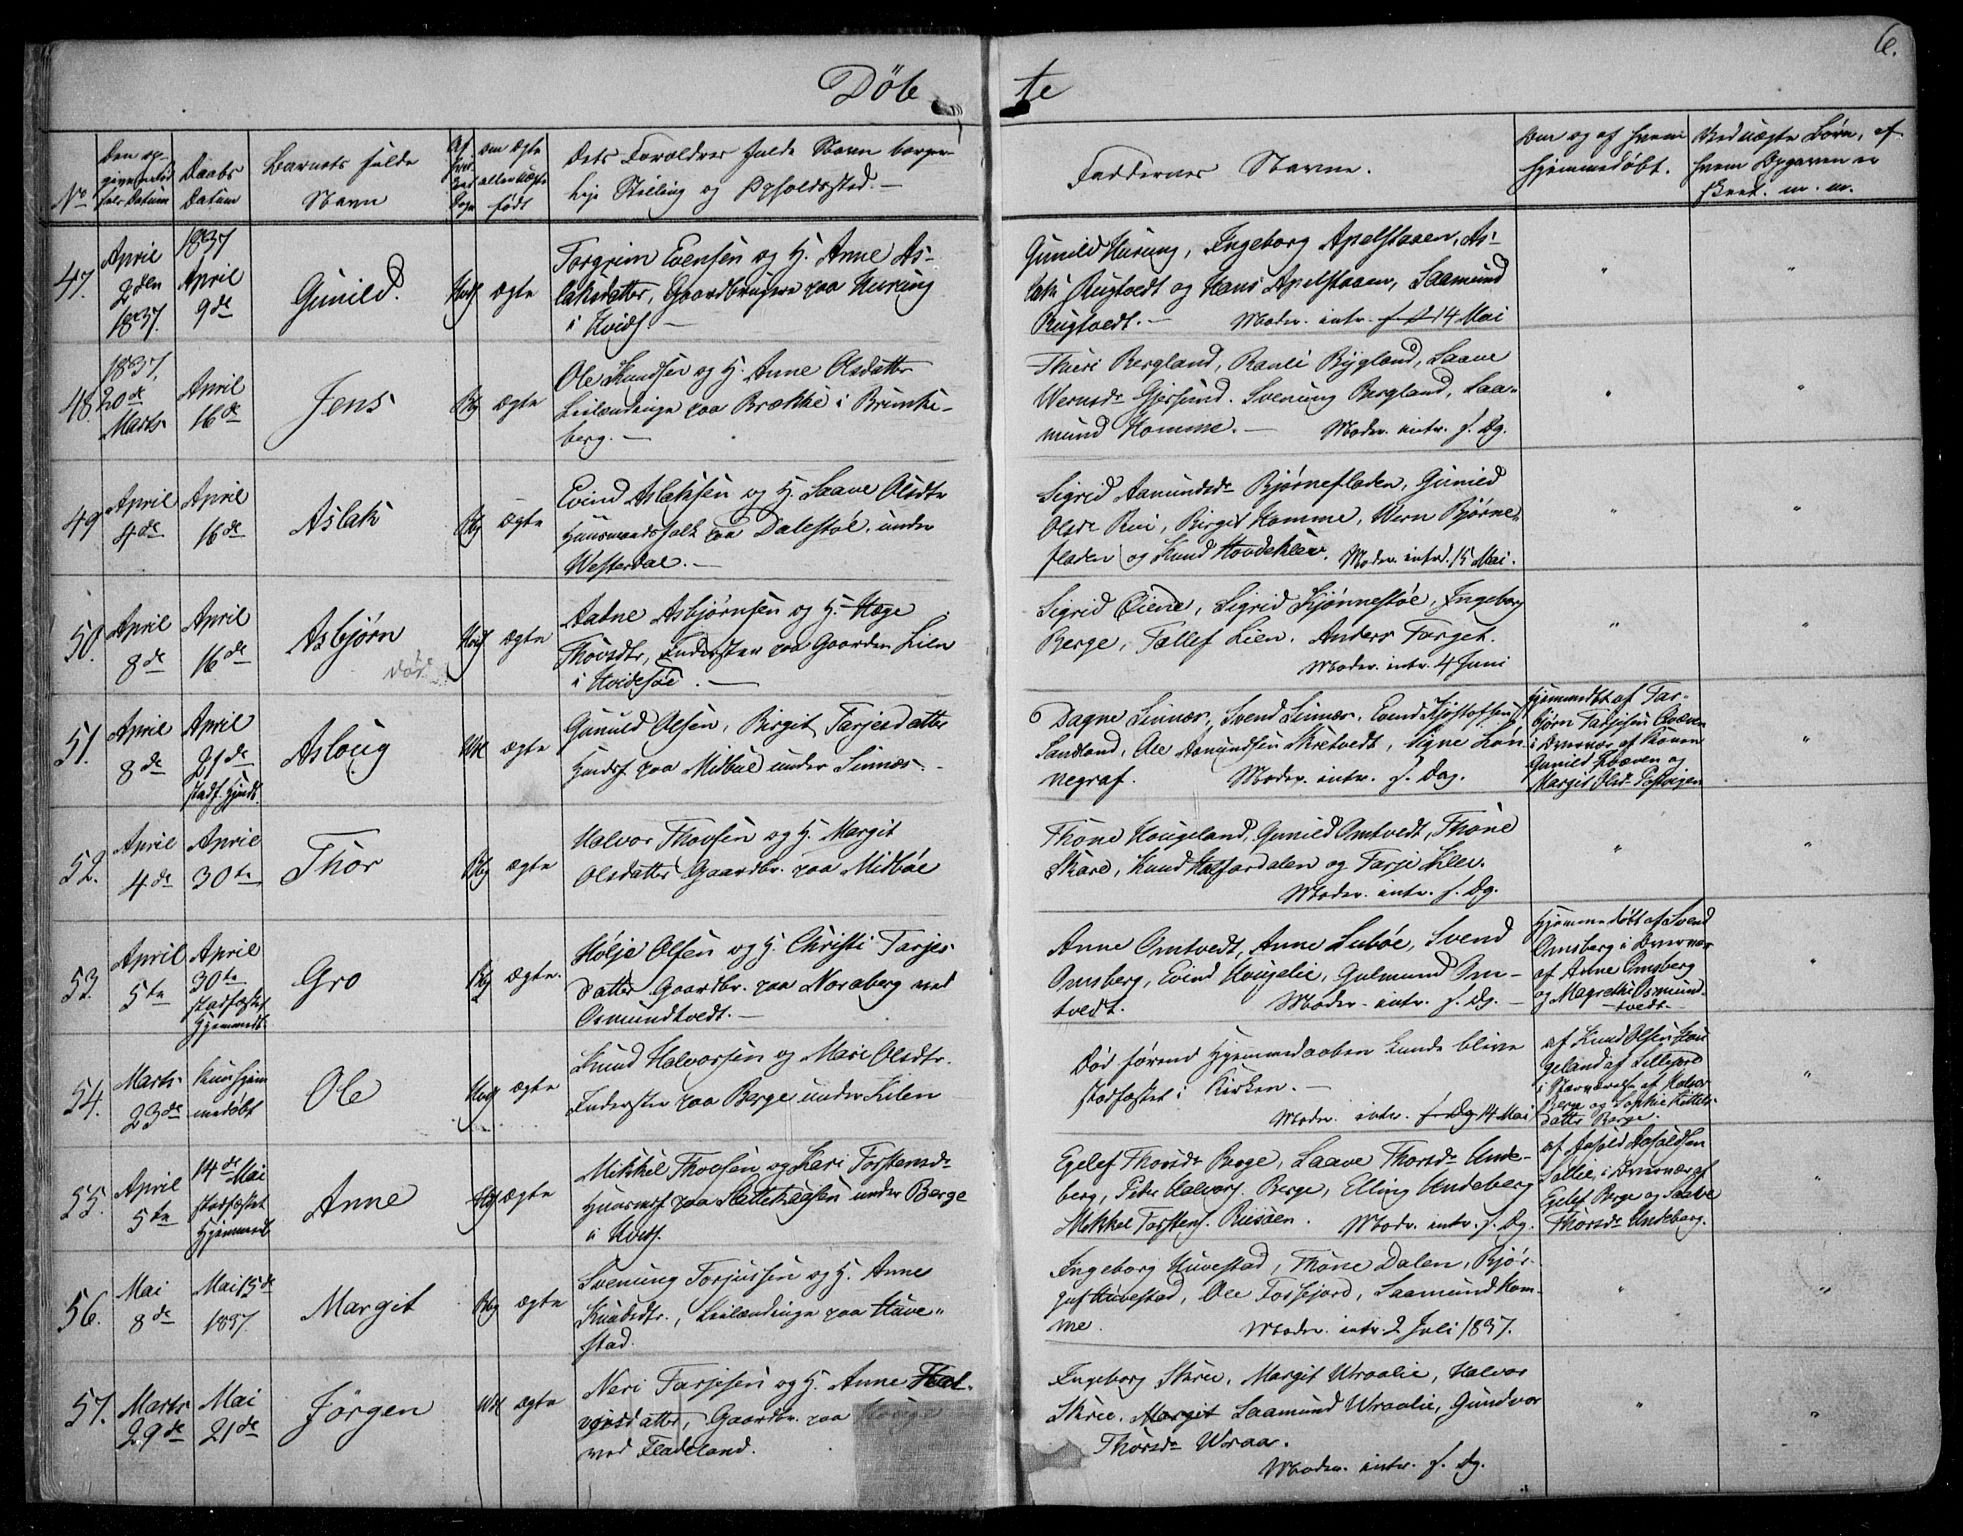 6.
Döb te
No
Den op-
given Fød
sels Datum
Daabs
Datum
Barnets fulde
Navn
om Ægte
eller Uægte
født
Dets Forældres fulde Navn borger-
lige Stilling og Opholdssted.—
Faddernes Navne.
Om og af hvem
hjemmedøbt.
Ved uægte Børn, af
hvem Opgaven er
skeet. m. m.
47.
April
2den
1837.
1837
April
9de
Gunild.
Hvids
ægte
Torgrim Evensen og H. Anne As-
laksdatter, Gaardbrugere paa Hurung
i Hvids —
Gunild Hurung, Ingeborg Apelstaaen, As-
lak Rugtvedt og Hans Apelstaaen, Saamund
Rugtvedt.— Moder. intr. 14 Mai
48.
1837.
20de
Marts
April
16de
Jens
Bbg
ægte
Ole Knudsen og H. Anne Olsdatter
Leilændinge paa Brække i Brunke-
berg.—
Thuri Bergland, Ranli Bygland, Saave
Wernsdr Gjersund. Svenung Bergland, Saa-
mund Homme.— Moder. intr. s. Dg.
49
April
4de
April
16de
Aslak
Bbg
ægte
Evind Aslaksen og H. Saave Olsdtr
Huusmandsfolk paa Dalestøl. under
Westerdal.—
Sigrid Aamundsdr Bjørnefladen, Gunild
Olsdr Rui, Birgit Homme, Wern Bjørne-
fladen og Knud Hovdekleiv. Moder. intrd. 15 Mai.
50.
April
8de
April
16de
Asbjørn
død
Hvids
ægte
Aadne Asbjørnsen og H. Hæge
Thovsdtr, Inderster paa Gaarden Lien
i Hvidesøe.—
Sigrid Øiene, Sigrid Kjønnestøe, Ingeborg
Berge, Tallef Lien. Anders Torget.
Moder. intr. 4 Juni
51.
April
8de
April
21de
stadf. Hjemds.
Asloug
Hvl
ægte
Gunuld Olsen, Birgit Tarjesdatter
Huusf. paa Midbøe under Sinnæs.
Dagne Sinnæs, Svend Sinnæs. Evind Kjøstofsen
Sandland, Ole Asmundsen Skretvedt, Signe Løn
negraf. Moder. intr. s. Dag.
Hjemmedbt af Tar-
bjørn Tarjesen Qvæven
i Overvær af Konen
Gunild Qvæven og
Margit Olsdr
52.
April
4de
April
30te
Thor
Bbg
ægte
Halvor Thovsen og H. Margit
Olsdatter Gaardbr. paa Midbøe
Thone Hougeland, Gunild Omtvedt, Thone
Skare, Knud Halfordalen og Tarje Klev.
Moder. intr. s. Dg.
53.
April
5te
April
30te
stadfæstet
Hjemmedt.
Gro
Bbg
ægte.
Hølje Olsen og H. Christi Tarjes-
datter Gaardbr. paa Noraberg ved
Osmundtvedt.—
Anne Omtvedt, Anne Lubøe, Svend
Omsberg, Evind Hougelie, Gulmund Om-
tvedt. Moder. intr. s. Dg.—
Hjemmedøbt af Svend
Omsberg i Overvær
af Anne Omsberg
og Magrethe Osmund-
tvedt
54.
Marts
23de
kun hjem
medøbt
Ole
Hvids
ægte
Knud Halvorsen og Mari Olsdtr.
Inderster paa Berge under Kilen
Død førend Hjemmedaaben kunde blive
stadfæstet i Kirken.—
Moder. intr. s. Dg 14 Mai
af Knud Olsen Hou
geland af Lillejord
i Nærværelse af Halvor
Berge og Sophie Kittels-
datter Berge.
55.
April
5te
14de Mai
stadfæstet
Hjemmedt.
Anne
Hvids
ægte
Mikkel Thovsen og Kari Torstensdr
Huusmdf. paa Slettehaugen under Berge
i Hvids.
Egelef Thorsdr Berge, Saave Thorsdr Unde-
berg, Peder Halvors. Berge, Elling Undeberg
Mikkel Torstens. Riisøen. Moder. intr. s. Dg.
i Overvær af
Egelef Berge og Saave
Thorsdr Undeberg.
56.
Mai
8de
Mai 15de
1837.
Margit
Bbg
ægte
Svenung Torjussen og H. Anne
Knudsdtr., Leilændinge paa Huve-
stad.
Ingeborg Huvestad, Thone Dalen, Bjør-
guf Huvestad, Ole Fossjord, Saamund Hom-
me. Moder. intr. 2 Juli 1837.
57.
Marts
29de
Mai
21de
Jörgen
Hvl
ægte
Neri Tarjesen og H. Anne Hal-
vorsdatter, Gaardbr. paa Houge
ved Fladeland.
Ingeborg Skree, Margit Wraalie, Halvor
Skree, Margit Saamund Wraalie, Gundvor
Thorsdr Wraa.
Moder. intr. s. Dg.